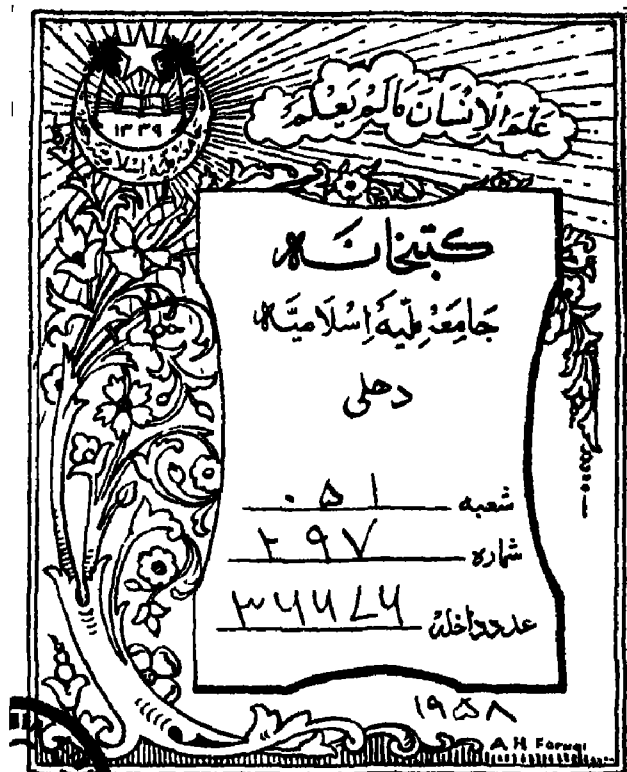 عَلَّمَ الْاِنْسَانَ مَا لَمْ يَعْلَمْ
۱۳۳۹
کتبخانہ
جَامِعَہ مِلِّیَہ اِسْلَامِیَّہ
دهلی
شعبہ ۰۵۱
شمارہ ۲۹۷
عدد داخلہ
۱۹۵۸
A H Faruqi